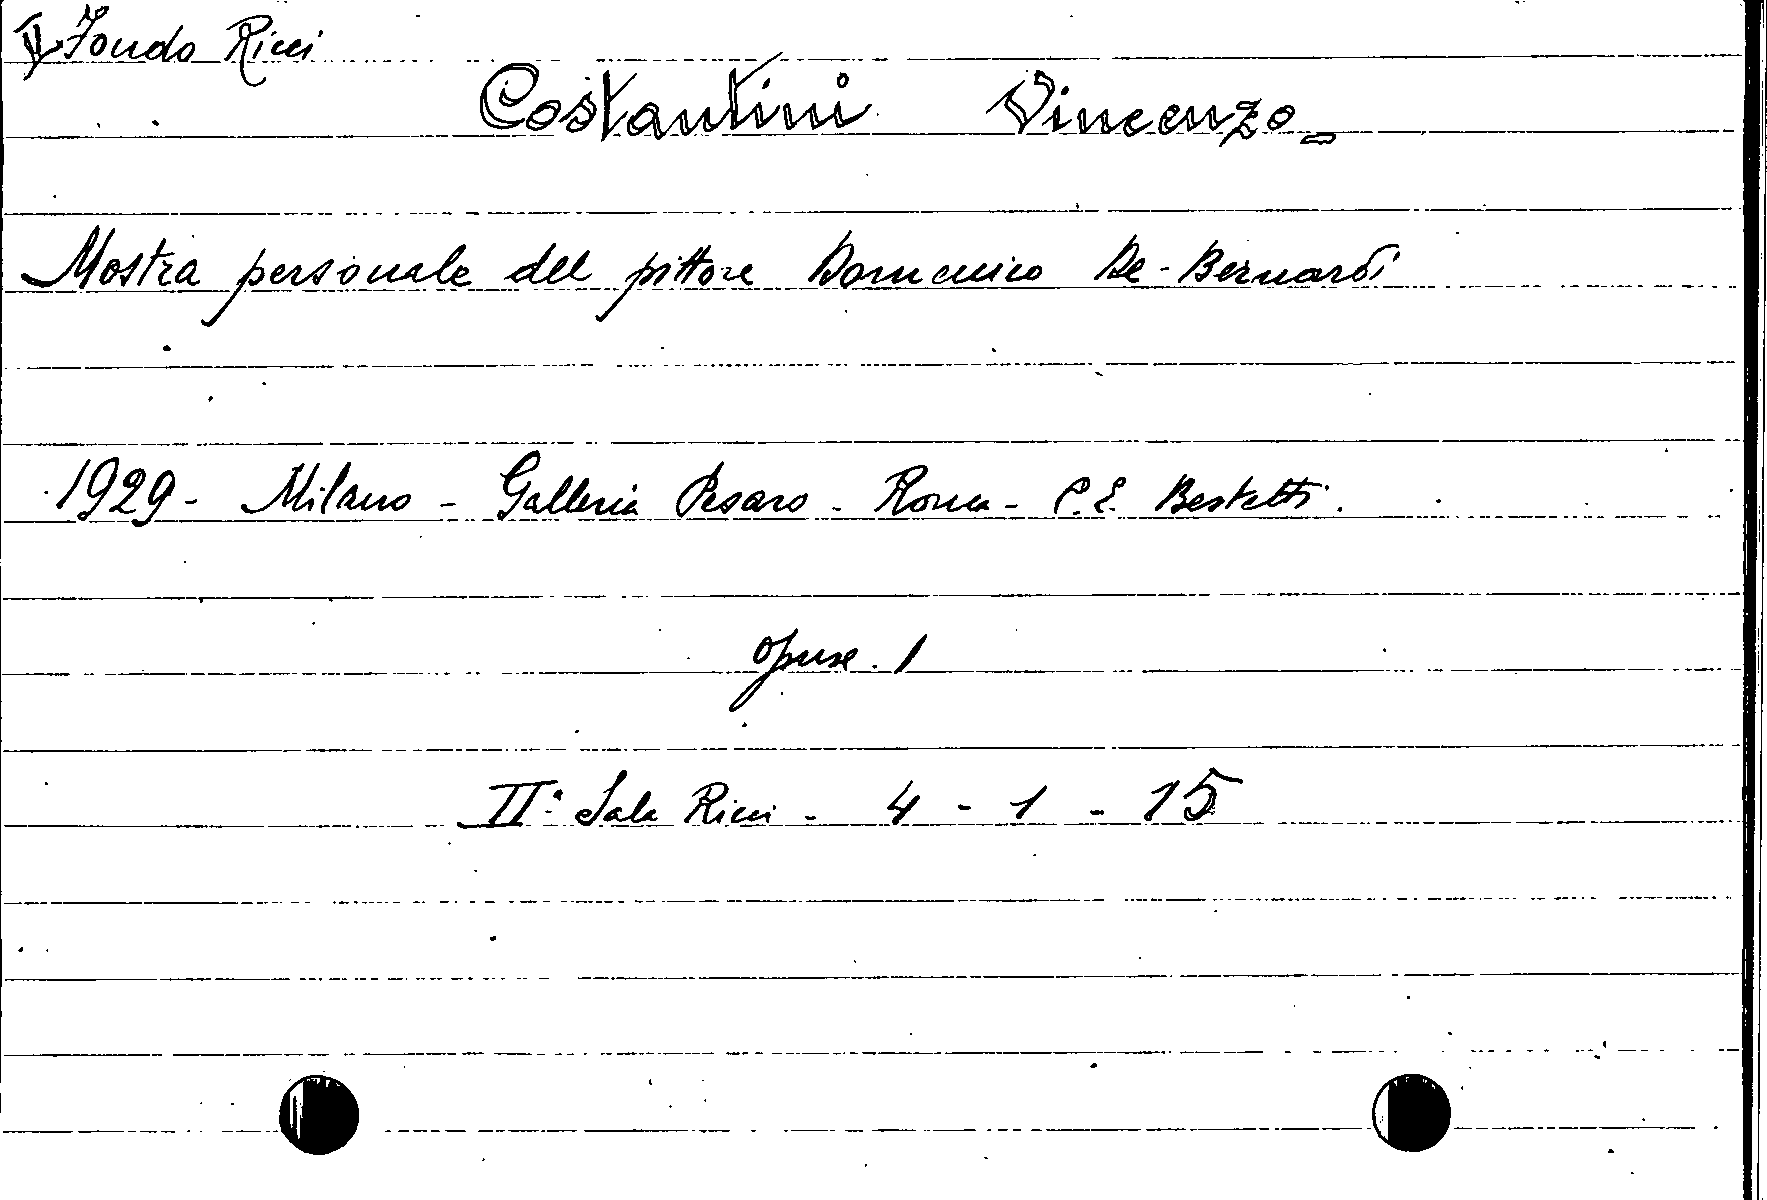 II Fondo Ricci
Costantini Vincenzo_
Mostra personale del pittore Domenico De-Bernardi
1929 - Milano - Galleria Pesaro - Roma - C.E. Bestetti.
opusc. 1
IIª Sala Ricci - 4 - 1 - 15